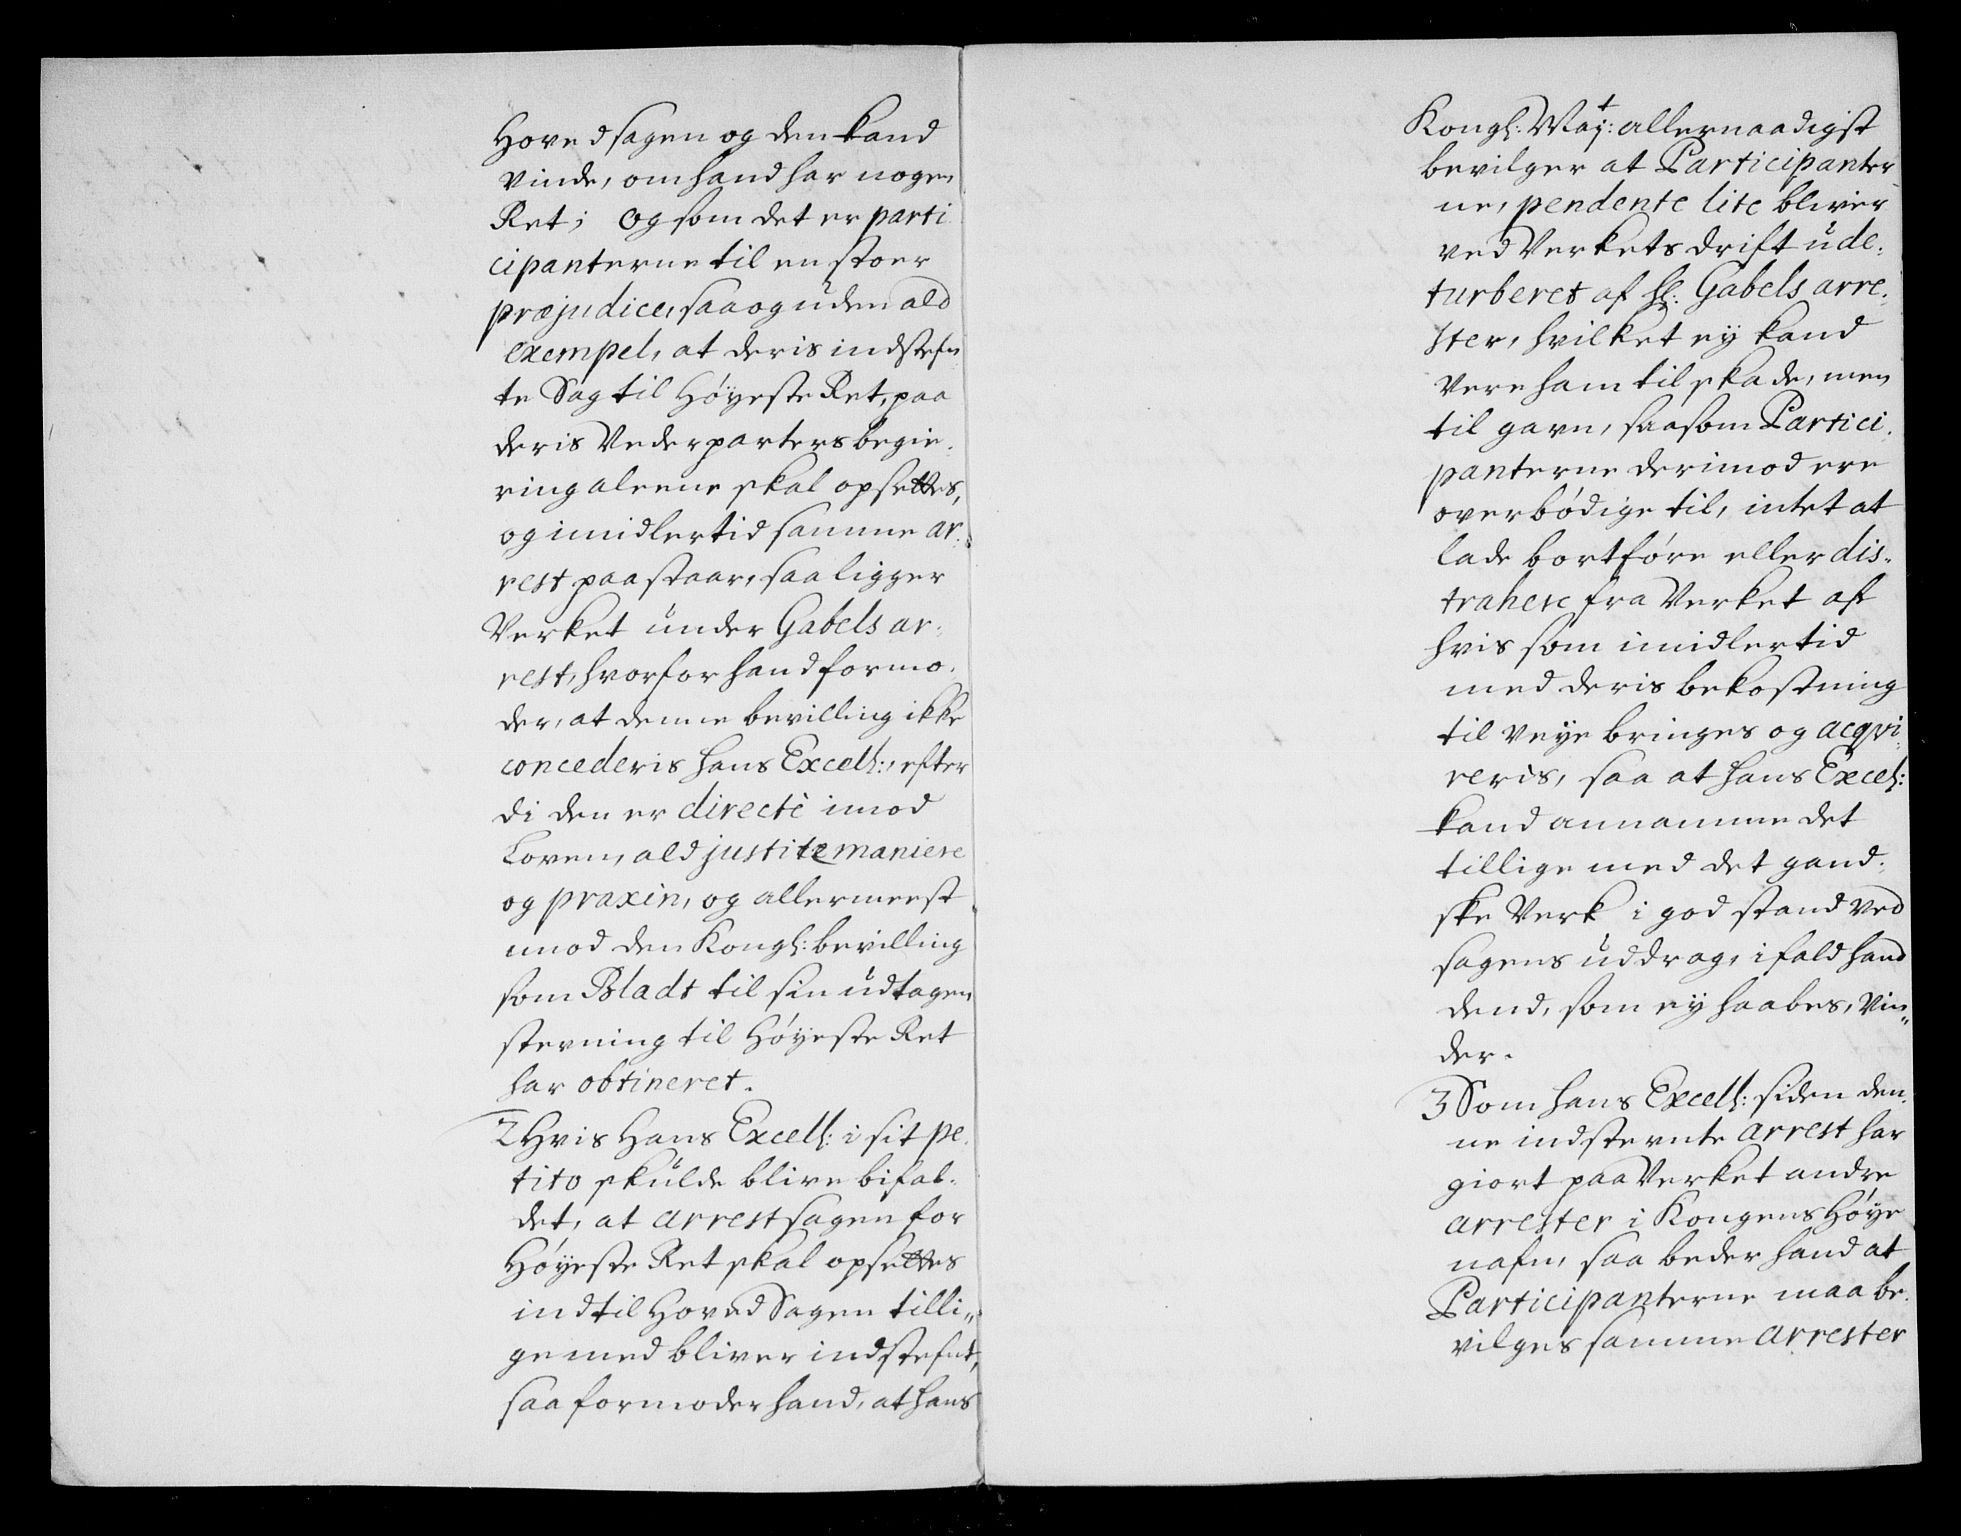 Hovedsagen og den kand
vinde, om hand har nogen
Ret; og som det er parti
cipanterne til en stoer
præjudice, saa og uden ald
exempel, at deris indstefn
te Sag til Høyeste Ret, paa
deris Vederparters begie-
ring aleene skal opsettes,
og imidlertid samme ar-
rest paastaar, saa ligger
Verket under Gabels ar-
rest, hvorfor hand formo-
der, at denne bevilling ikke
concederis hans Excell:, efter
di den er directè imod
Loven, ald justitz maniere
og praxin, og allermeest
imod den Kongl: bevilling
som Bladt til sin udtagen
stevning til Høyeste Ret
har obtineret.
2 Hvis Hans Excell: i sit pe-
tito skulde blive bifal-
det, at arrestsagen for
Høyeste Ret skal opsettes
indtil HovedSagen tilli-
ge med bliver indstefnt,
saa formoder hand, at hans
Kongl: Maj:t allernaadigst
bevilger at Participanter-
ne, pendente lite bliver
ved Verkets drift u de-
turberet af Hr: Gabels arre-
ster, hvilket ey kand
vere ham til skade, men
til gavn, saasom Partici-
panterne derimod ere
overbødige til, intet at
lade bortføre eller dis-
trahere fra Verket af
hvis som imidlertid
med deris bekostning
til veye bringes og acqvi-
reris, saa at hans Excel:
kand annamme det
tillige med det gand-
ske Verk i god stand ved
sagens uddrag, ifald hand
dend, som ey haabes, vin-
der.
3 Som hans Excell: siden den-
ne indstevnte arrest har
giort paa Verket andre
arrester i Kongens Høye
nafn, saa beder hand at
Participanterne maa be-
vilges samme arrester